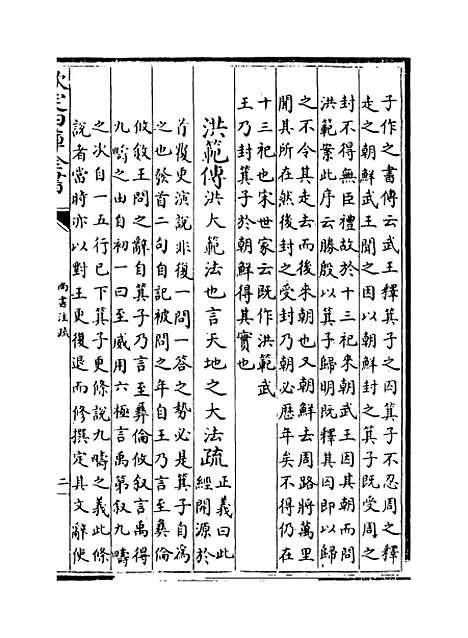 子作之書傳云武王釋箕子之囚箕子不忍周之釋
走之朝鮮武王聞之因以朝鮮封之箕子既受周之
封不得無臣禮故於十三祀來朝武王因其朝而問
洪範案此序云勝殷以箕子歸明既釋其囚即以歸
之不令其走去而後來朝也又朝鮮去周路將萬里
聞其所在然後封之受封乃朝必歷年矣不得仍在
十三祀也宋世家云既作洪範武
王乃封箕子於朝鮮得其實也
洪範傳洪大範法也言天地之大法疏正義曰此
經開源於
首覆更演說非復一問一答之勢必是箕子自為
之也發首二句自記被問之年自王乃言至彝倫
攸敘王問之辭自箕子乃言至彝倫攸敘言禹得
九疇之由自初一曰至威用六極言禹第敘九疇
之次自一五行已下箕子更條說九疇之義此條
說者當時亦以對王更復退而修撰定其文辭使
欽定四庫全書
尚書注疏
二